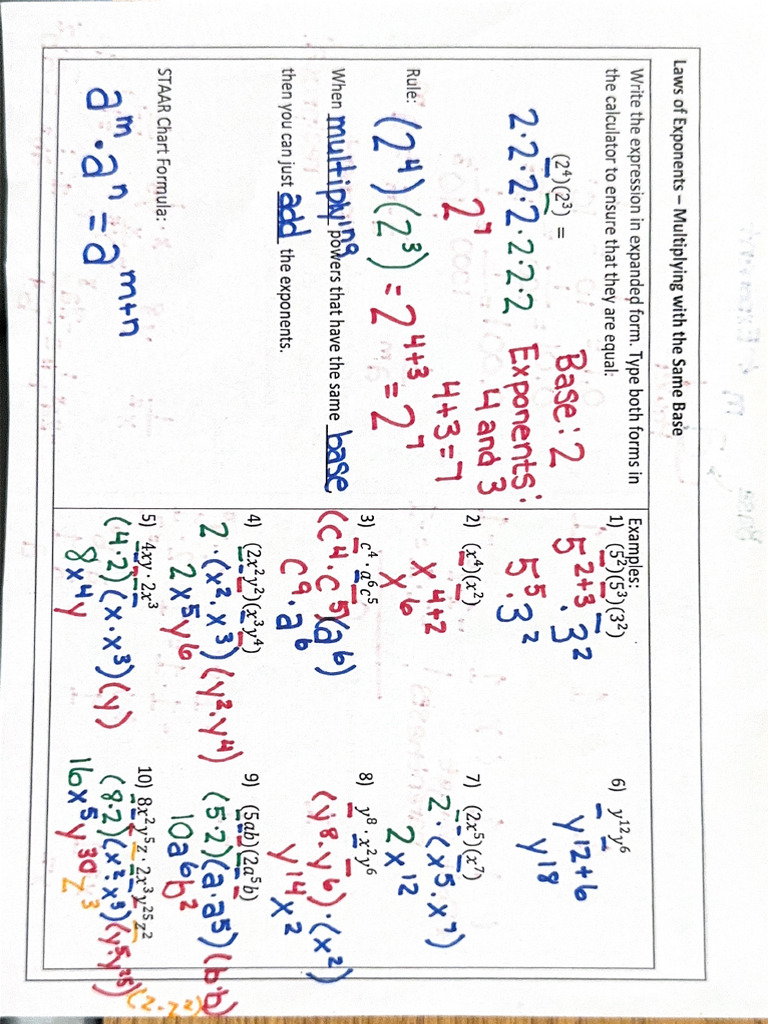 Laws of Exponents – Multiplying with the Same Base
Write the expression in expanded form. Type both forms in
the calculator to ensure that they are equal:
(2⁴)(2³) =
Base: 2
2·2·2·2·2·2·2
Exponents:
4 and 3
2⁷
4+3=7
Rule: (2⁴)(2³) = 2⁴⁺³ = 2⁷
When multiplying powers that have the same base
then you can just add the exponents.
STAAR Chart Formula:
aᵐ·aⁿ = aᵐ⁺ⁿ
Examples:
1) (5²)(5³)(3²)
5²⁺³·3²
5⁵·3²
2) (x⁴)(x²)
x⁴⁺²
x⁶
3) c⁴·a⁶c⁵
(c⁴·c⁵)(a⁶)
c⁹·a⁶
4) (2x²y²)(x³y⁴)
2·(x²·x³)(y²·y⁴)
2x⁵y⁶
5) 4xy·2x³
(4·2)(x·x³)(y)
8x⁴y
6) y¹²y⁶
y¹²⁺⁶
y¹⁸
7) (2x⁵)(x⁷)
2·(x⁵·x⁷)
2x¹²
8) y⁸·x²y⁶
(y⁸·y⁶)·(x²)
y¹⁴x²
9) (5ab)(2a⁵b)
(5·2)(a·a⁵)(b·b)
10a⁶b²
10) 8x²y⁵z·2x³y²⁵z²
(8·2)(x²·x³)(y⁵y²⁵)(z·z²)
16x⁵y³⁰z³